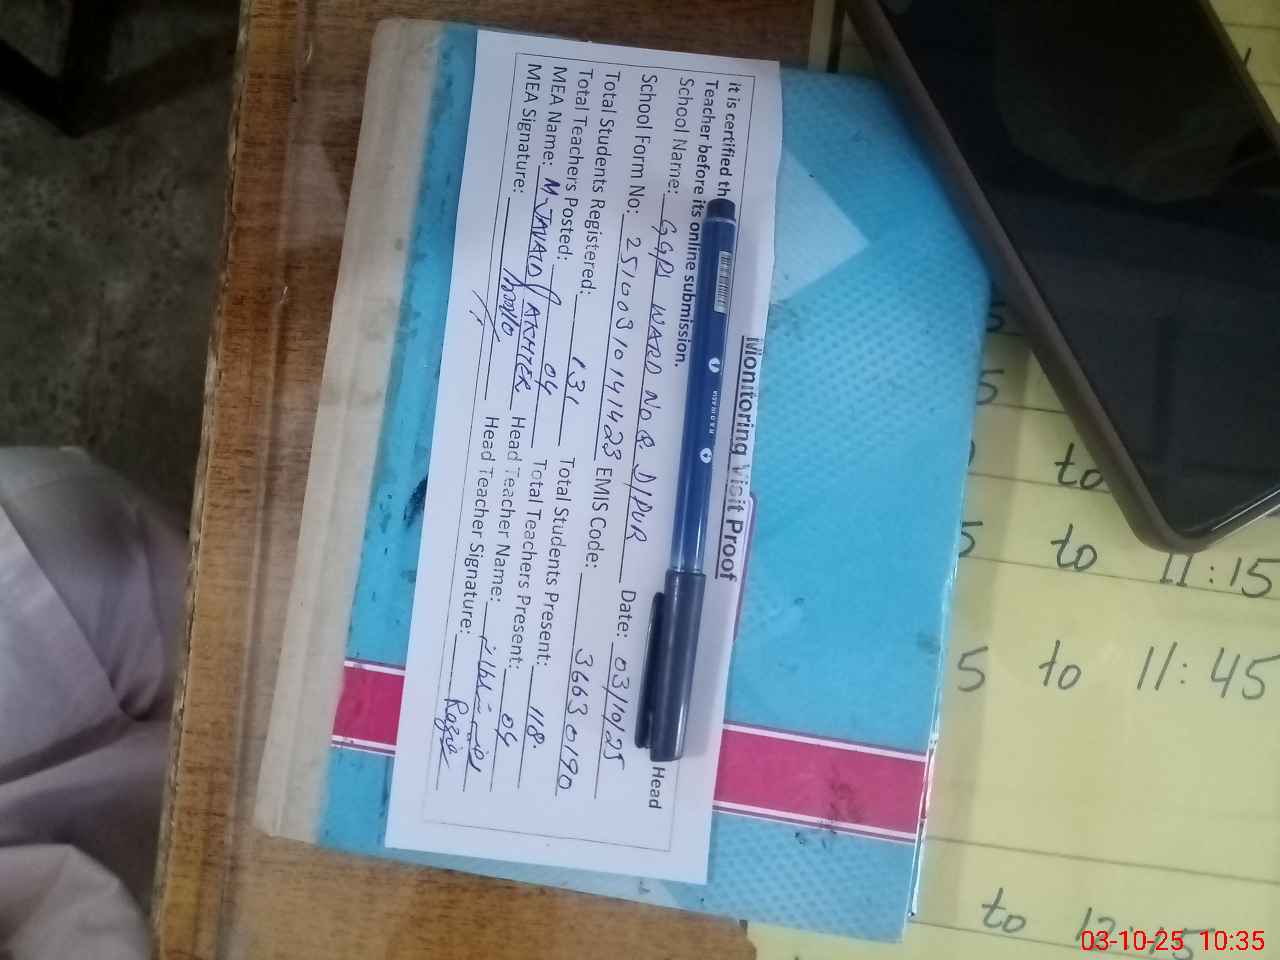 Monitoring Visit Proof
it is certified th Head
Teacher before its online submission.
School Name: GGPS WARD NO 8 D/PUR Date: 03/10/25
School Form No: 25100310141423 EMIS Code: 36630190
Total Students Registered: 131 Total Students Present: 118
Total Teachers Posted: 04 Total Teachers Present: 04
MEA Name: M JAVAID AKHTER Head Teacher Name:
MEA Signature: Head Teacher Signature: Razia
5
5
to
5 to 11:15
5 to 11:45
to 12:15
03-10-25 10:35